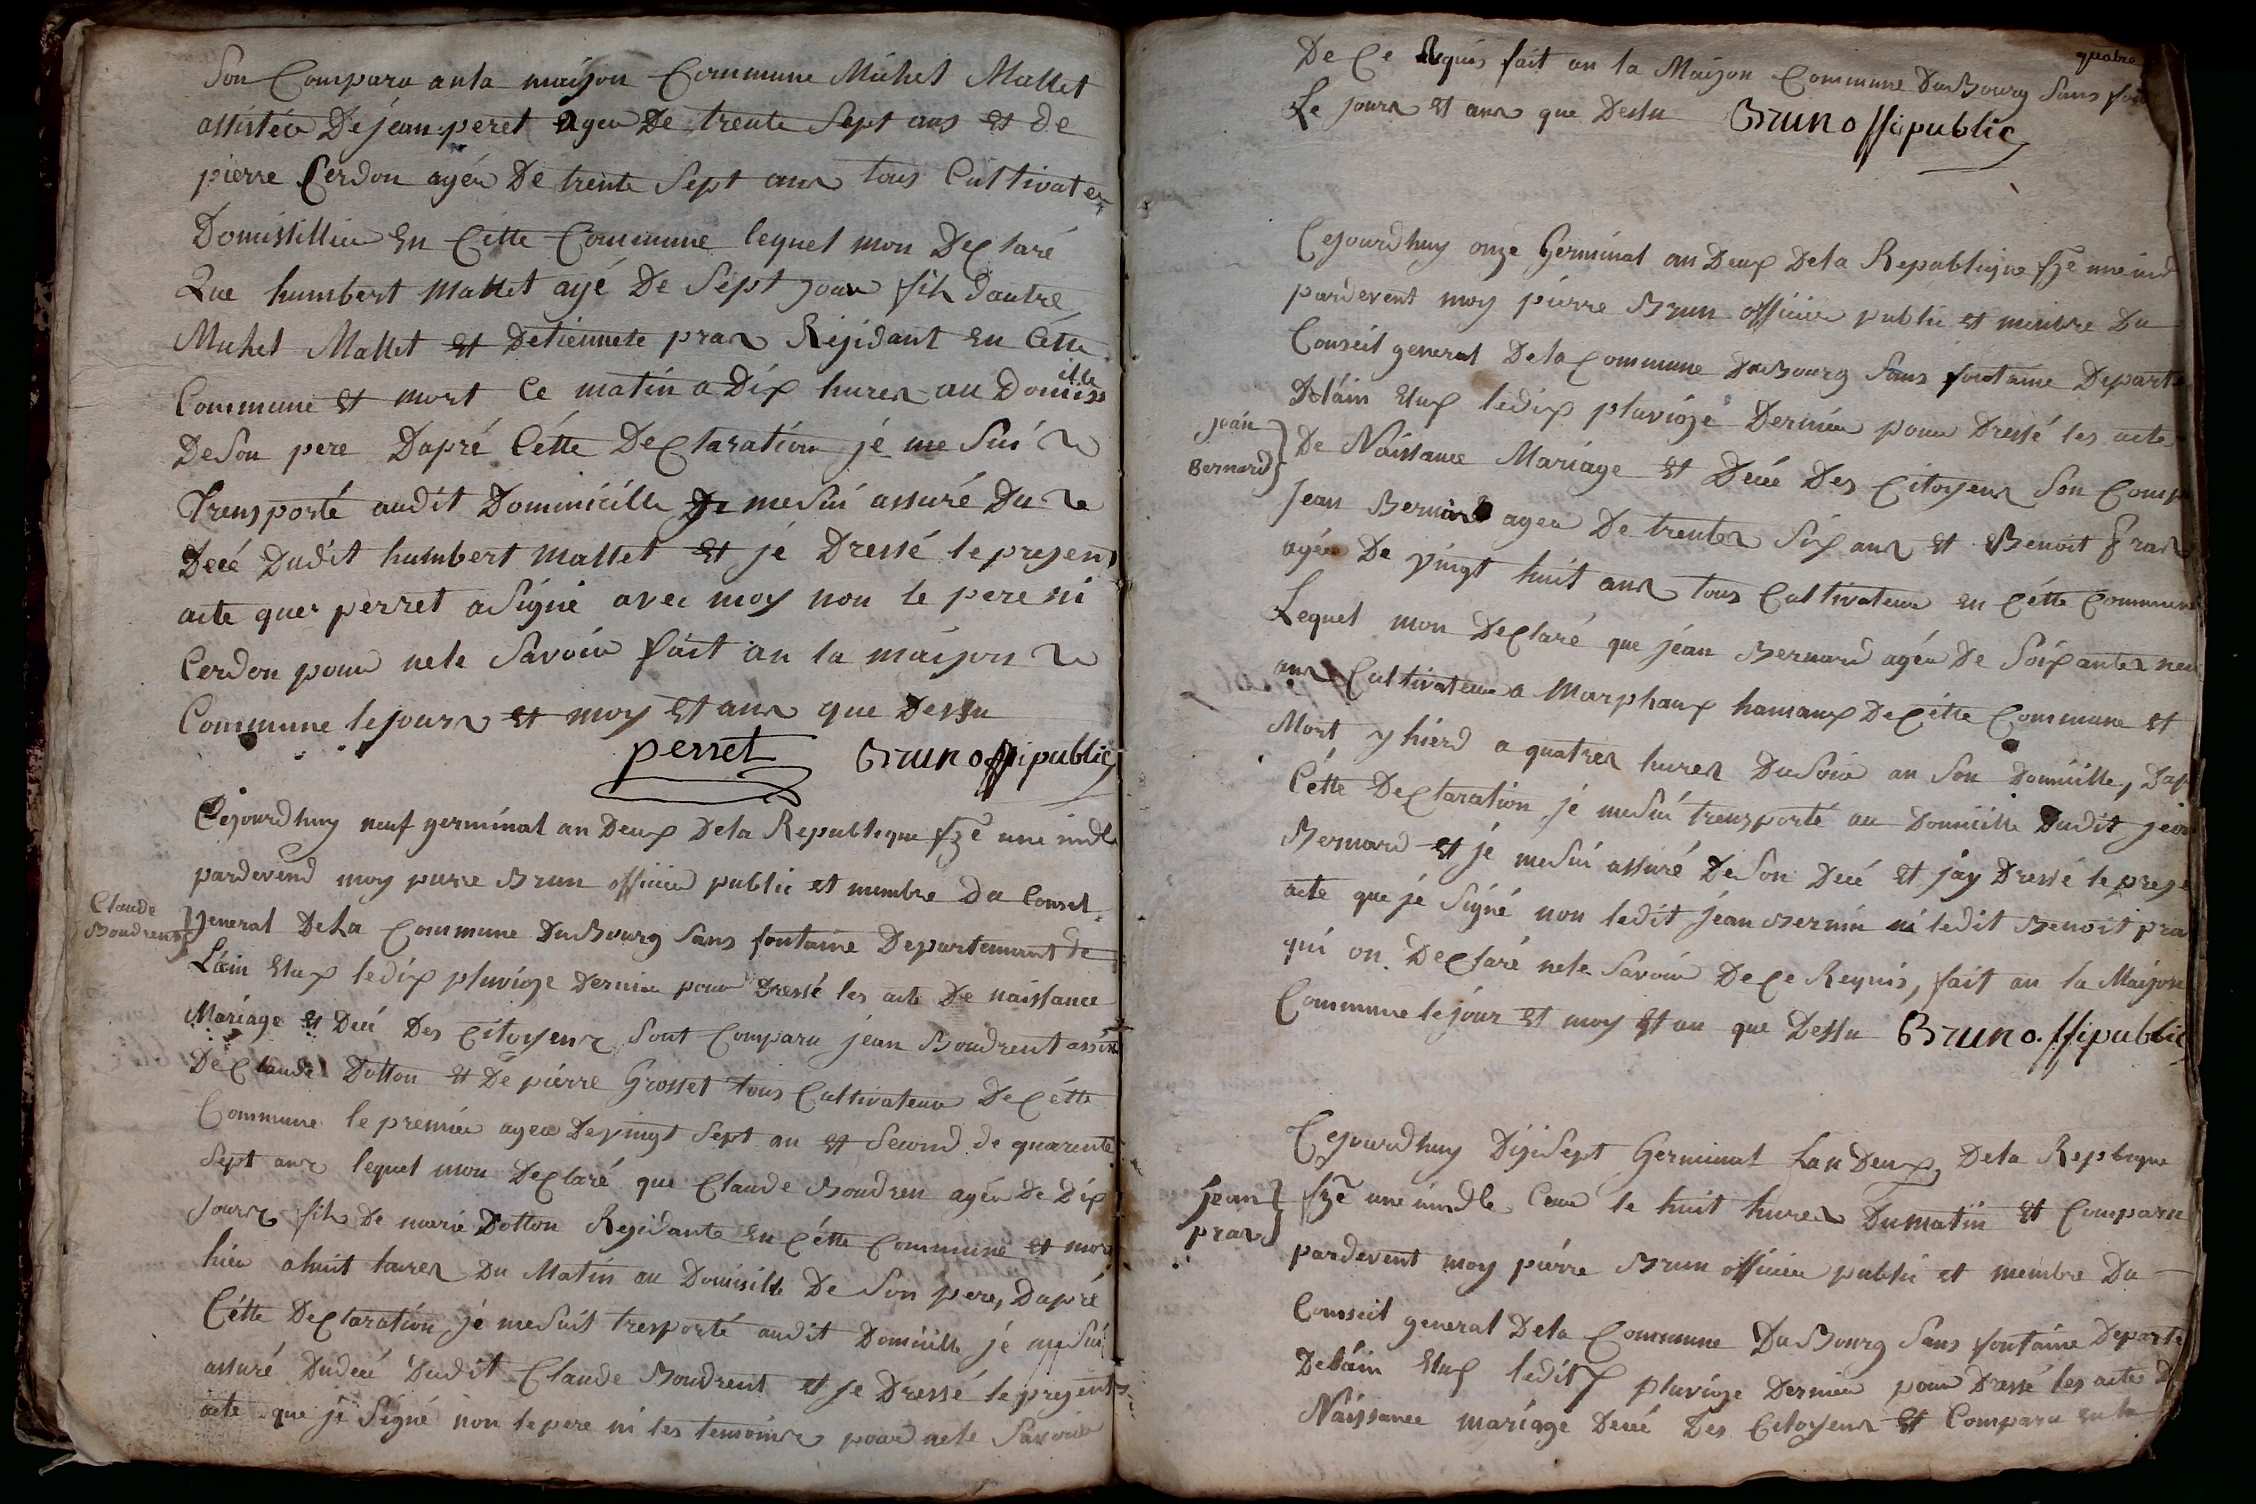 Son Comparu an la maison Commune Michel Mallet
assistée De jean peret agée De trente Sept ans et de
pierre Cerdon agée De trente Sept ans tous Cultivateur
Domistillier En Cette Commune lequel mon Declaré
Que humbert Mallet agé De Sept jour fils dautre
Michel Mallet et detiennete pras Rezidant En Cette
Commune et mort Ce matin a Dix hures au Domissille
De Son pere Dapré Cétte Declaration jé me Sui
Transporté audit Domicille me Sui assuré Du
Décé Dudit humbert Mallet et jé Dressé le present
acte que perret a Signé avec moy non le pere ni
Cerdon pour nele Savoir fait an la maison
Commune le jours et moy et ans que Dessu
perret Brun offi public
Cejourdhuy neuf germinal an Deux Dela Republique fze une indle
pardevend moy pierre Brun officier public et membre du Conset
Claude
Boudrent
general De La Commune Du Bourg Sans fontaine Departemant de
Lain Elux ledix pluvioze Dernier pour Dressé les acte De naissance
Mariage et Décé Des Citoyens Sont Comparu jean Boudrent assisté
De Claude Dotton et De piérre Grosset tous Cultivateur De Cétte
Commune le premier agée De vingt Sept an et Second de quarente
Sept ans lequel mon Declaré que Claude Boudren agée De Dix
jours fils De marie Dotton Rezidante En Cétte Commune et mor
hier a huit hures Du Matin au Domisille De Son pere, Dapré
Cétte Declaration jé me Suit tresporté audit Domicille jé me Sui
assuré Dudecé Dudit Claude Boudrent et je Dressé le prezent
acte que jé Signé non le pere ni les temoins pour nele Savoir
quatre
De Ce Requis fait an la Maizon Commune Du Bourg Sans font
Le jours et ans que Dessu Brun offi public
Cejourdhuy onze Germinal an Deux Dela Republique fze une ind
pardevent moy piérre Brun officier public et membre Du
Conseil general De la Commune Du Bourg Sans fontaine Departe
Delain Elux ledix pluvioze Dernier pour Dressé les acte
jean
Bernard
De Naissance Mariage et Décé Des Citoyens Son Comp
jean agée De trentes Six ans et Benoit Pras
agée De vingt huit ans tous Cultivateur en Cétte Commune
Lequel mon Declaré que jéan Bernard agée De Soixantes neu
ans Cultivateur a Marphaux hamaux De Cétte Commune et
Mort y hierd a quatres hures Du Soir an Son Domicille, Dap
Cétte Declaration jé me Sui transporté au Domicille Dudit jean
Bernard et jé me Sui assuré De Son Décé et jay Dressé le preze
acte que jé Signé non ledit jéan Bernin ni ledit Benoit pra
qui on Declaré nele Savoir De Ce Requis, fait an la Maizon
Commune le jour et moy et an que Dessu Brun offi public
Cejourdhuy DiziSept Germinal Lan Deux, Dela Repblique
jean
pras
fze une indle Ceur le huit hures Dumatin et Comparu
pardevent moy piérre Brun officier public et membre Du
Conseil general Dela Commune Du Bourg Sans fontaine Departe
Delain Elux ledix pluvioze Dernier pour Dressé les acte De
Naissance mariage Decé Des Citoyens et Comparu en la